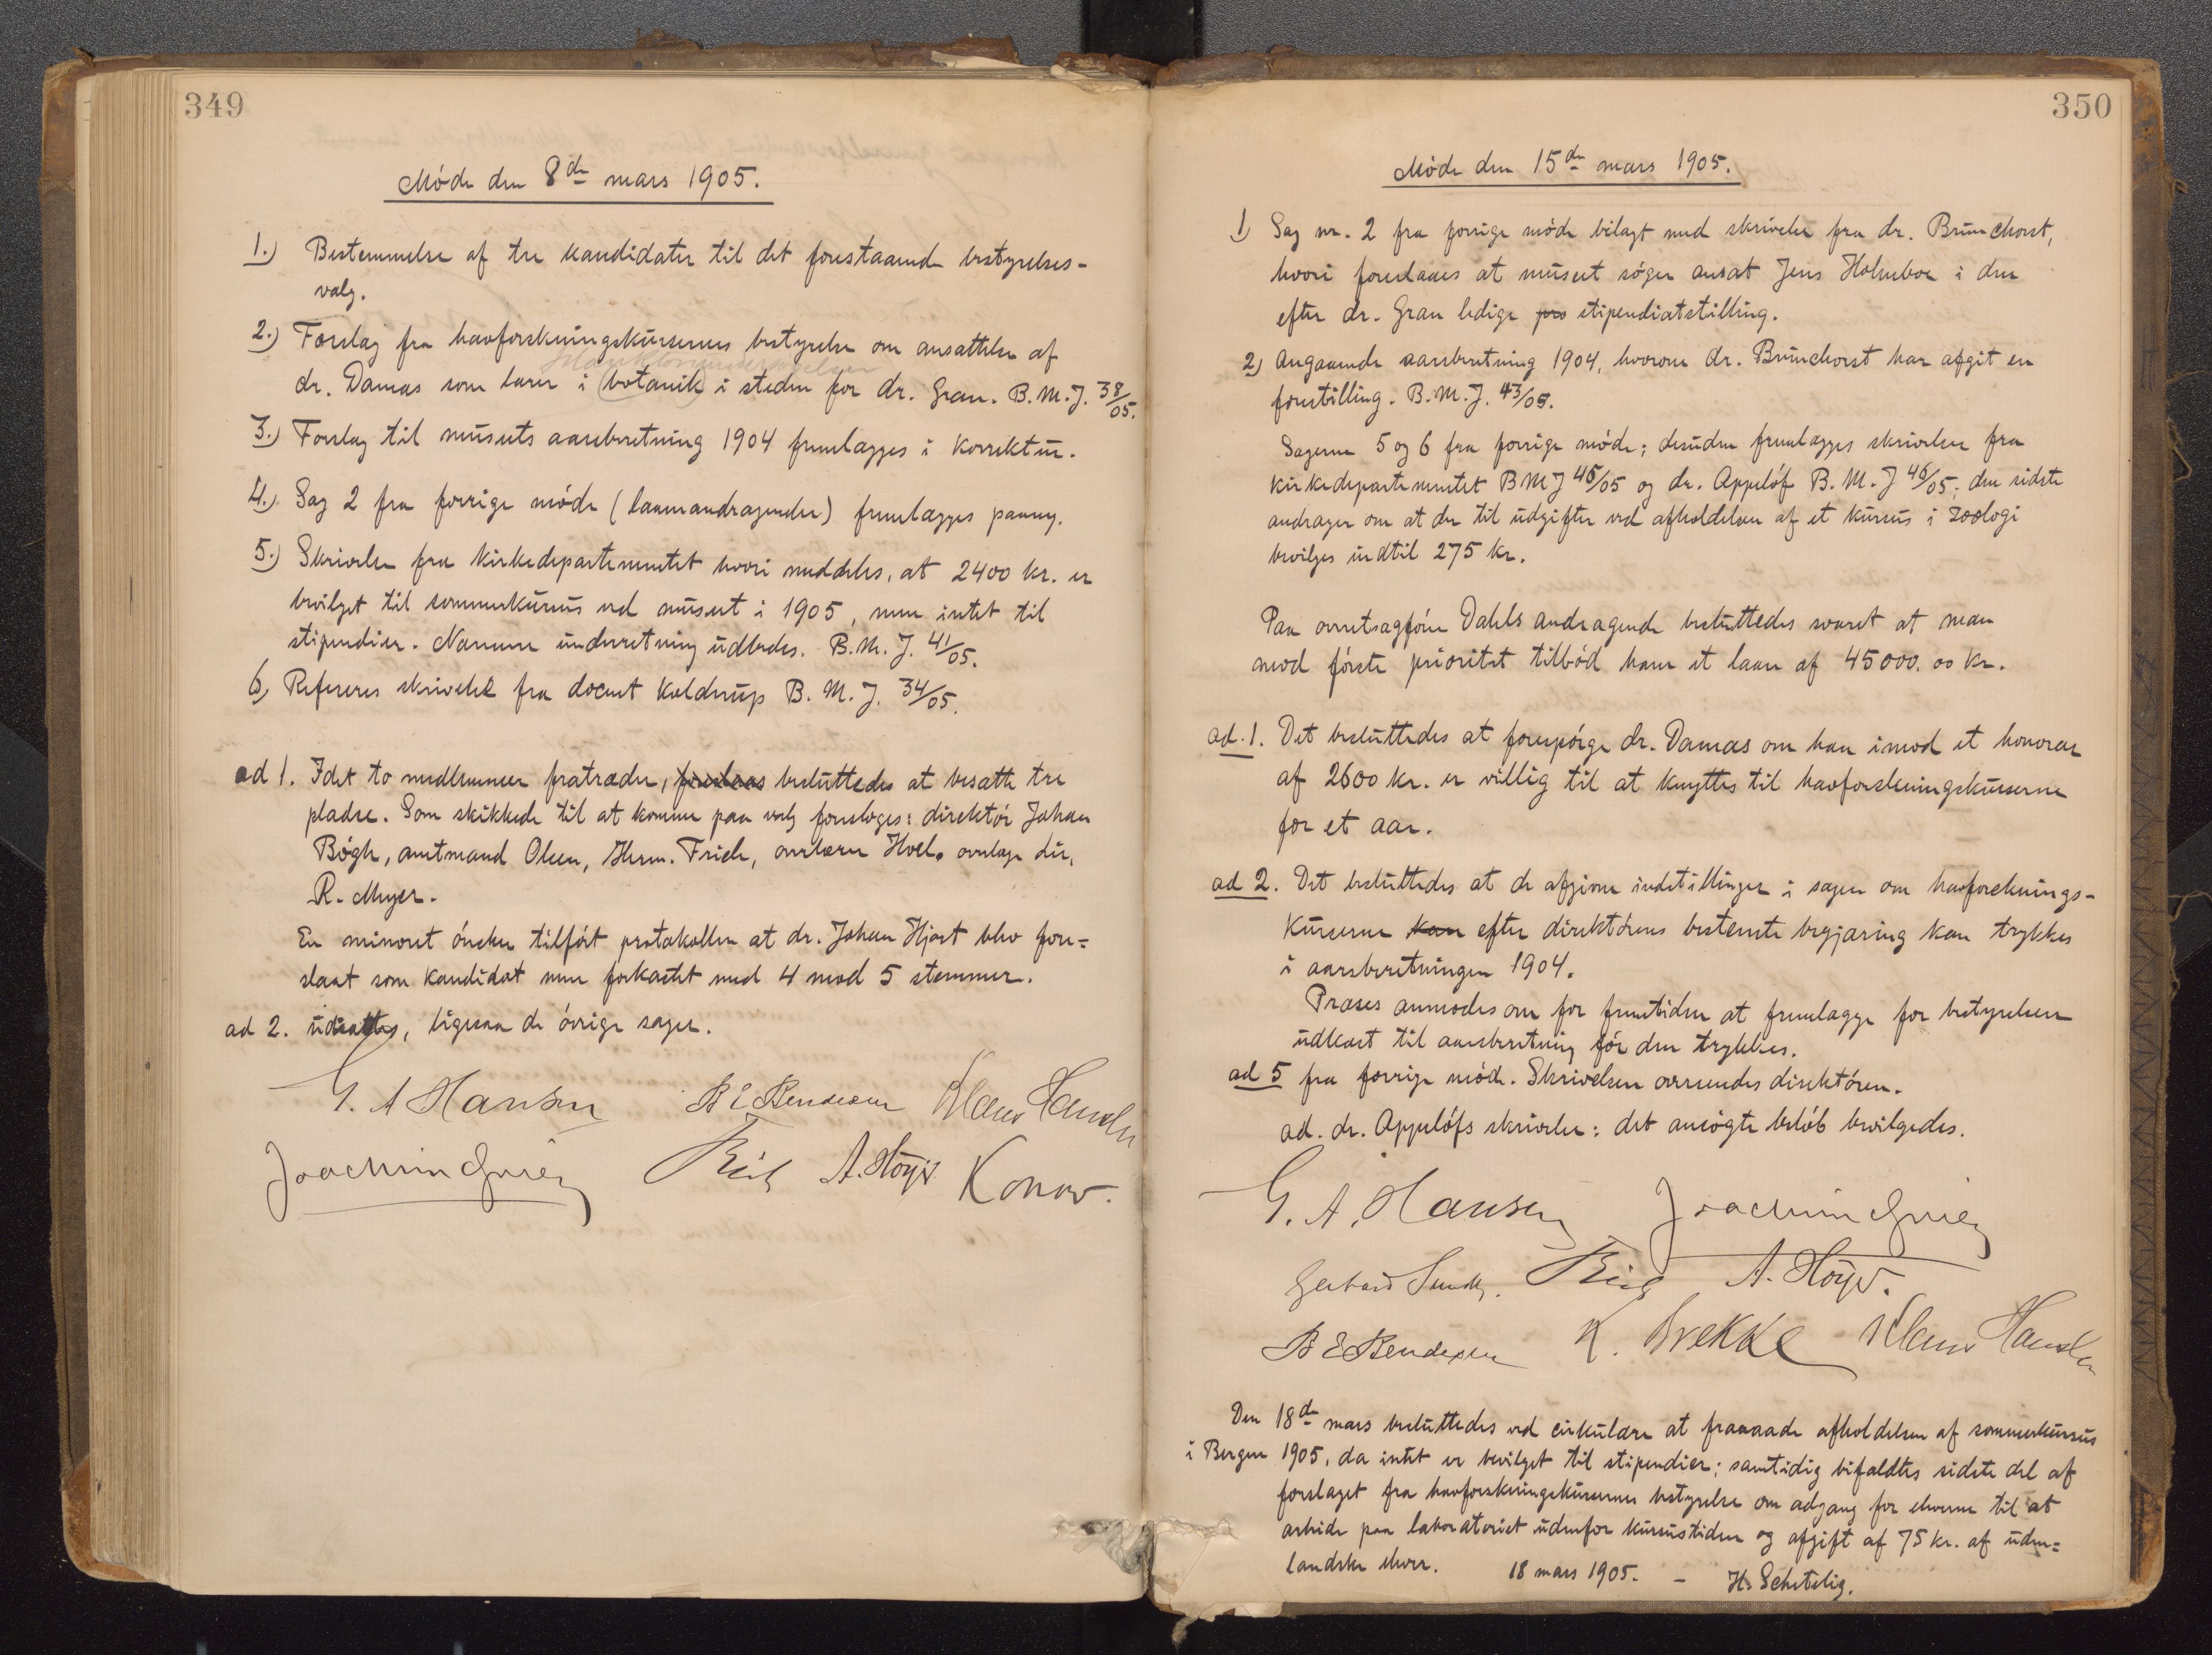 349
Møde den 8de mars 1905.
1.) Bestemmelse af tre kandidater til det forestaaende bestyrelses-
valg.
2.) Forslag fra havforskningskursernes bestyrelse om ansættelse af
planktonundersøgelser
dr. Damas som lærer i (botanik) i steden for dr. Gran. B.M.J. 38/05.
3.) Forslag til museets aarsberetning 1904 fremlægges i korrektur.
4.) Sag 2 fra forrige møde (laaneandragender) fremlægges paany.
5.) Skrivelse fra Kirkedepartementet hvori meddeles, at 2400 kr. er
bevilget til sommerkursus ved museet i 1905, men intet til
stipendier. Nærmere underretning udbedes. B.M.J. 41/05.
6) Refereres skrivelse fra docent Kolderup B.M.J. 34/05.
ad 1. Idet to medlemmer fratræder, foreslaaes besluttedes at besætte tre
pladse. Som skikkede til at komme paa valg foresloges: direktør Johan
Bøgh, amtmand Olsen, Herm. Friele, overlærer Hoel, overlæge dr.
R. Meyer.
En minoret ønsker tilført protokollen at dr. Johan Hjort blev fore=
slaat som kandidat men forkastet med 4 mod 5 stemmer.
ad 2. udsattes, ligesaa de øvrige sager.
G. A Hansen B E Bendixen Klaus Hanssen
Joachim Grieg A. Høyer Konow.
350
Møde den 15de mars 1905.
1) Sag nr. 2 fra forrige møde bilagt med skrivelse fra dr. Brunchorst,
hvori foreslaaes at museet søger ansat Jens Holmboe i den
efter dr. Gran ledige pro stipendiatstilling.
2) Angaaende aarsberetning 1904, hvorom dr. Brunchorst har afgit en
forestilling. B.M.J. 43/05.
Sagerne 5 og 6 fra forrige møde; desuden fremlægges skrivelser fra
Kirkedepartementet BMJ 45/05 og dr. Appelöf B.M.J 46/05; den sidste
andrager om at der til udgifter ved afholdelsen af et kursus i zoologi
bevilges indtil 275 kr.
Paa overretsagfører Dahls andragende besluttedes svaret at man
mod første prioritet tilbød ham et laan af 45000.00 kr.
ad. 1. Det besluttedes at forespørge dr. Damas om han imod et honorar
af 2600 kr. er villig til at knyttes til havforskningskurserne
for et aar.
ad 2. Det besluttedes at de afgivne indstillinger i sagen om havforsknings-
kurserne kan efter direktørens bestemte begjæring kan trykkes
i aarsberetningen 1904.
Præses anmodes om for fremtiden at fremlægge for bestyrelsen
udkast til aarsberetning før den trykkes.
ad 5 fra forrige møde. Skrivelsen oversendes direktøren.
ad. dr. Appelöfs skrivelse: det ansøgte beløb bevilgedes.
G. A. Hansen Joachim Grieg
Gerhard A. Høyer.
B E Bendixen K. Brekke Klaus Hanssen
Den 18de mars besluttedes ved cirkulære at fraraade afholdelsen af sommerkursus
i Bergen 1905, da intet er bevilget til stipendier; samtidig bifaldtes sidste del af
forslaget fra havforskningskursernes bestyrelse om adgang for eleverne til at
arbeide paa laboratoriet udenfor kursustiden og afgift af 75 kr. af uden=
landske elever. 18 mars 1905. - H. Schetelig.